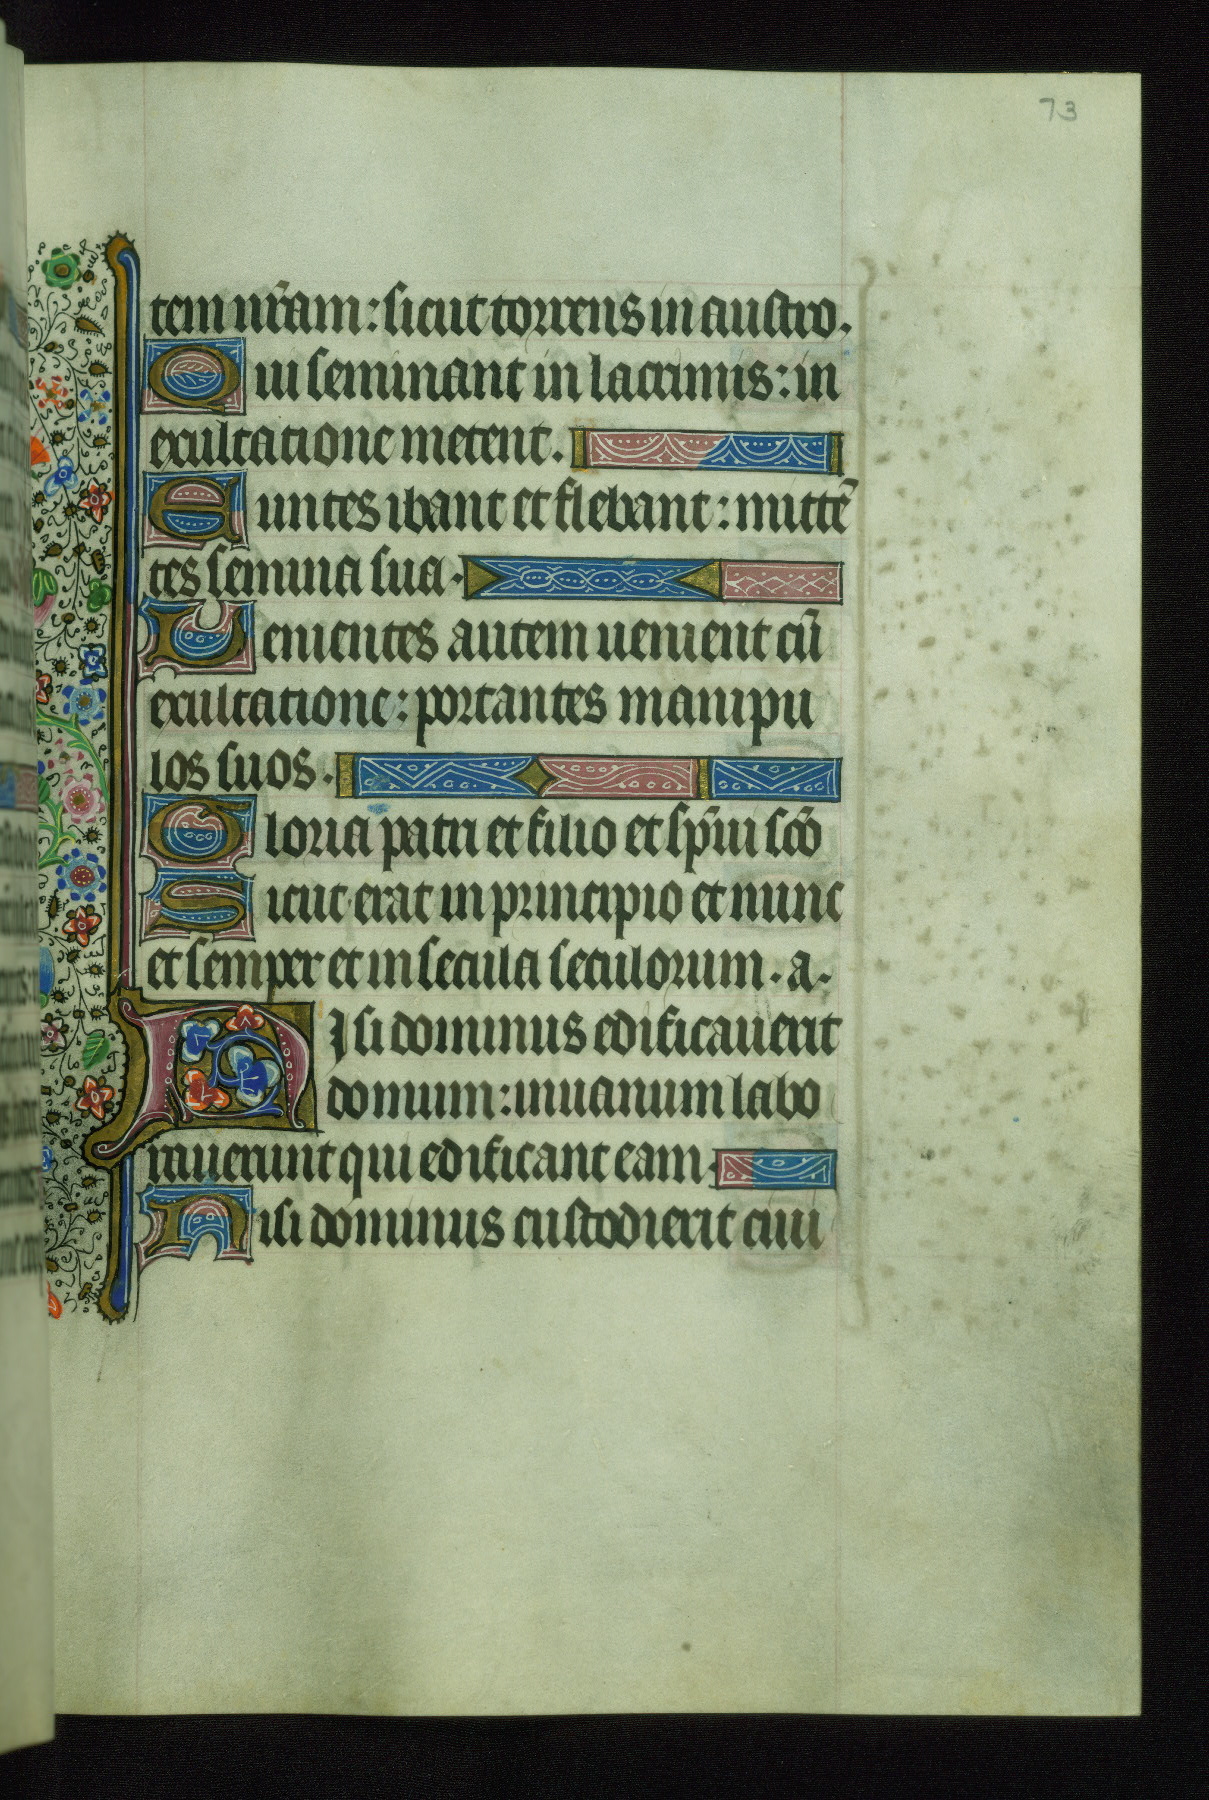 73
tem nr̃am: sicut torrens in austro.
Qui seminant in lacrimis: in
exultatione metent.
Euntes ibant et flebant: mittẽ
tes semina sua.
Uenientes autem uenient cũ
exultatione: portantes manipu
los suos.
Gloria patri et filio et sp̃ui sc̃o
Sicut erat in principio et nunc
et semper et in secula seculorum. a.
Nisi dominus edificauerit
domum: inuanum labo
rauerunt qui edificant eam.
Nisi dominus custodierit ciui